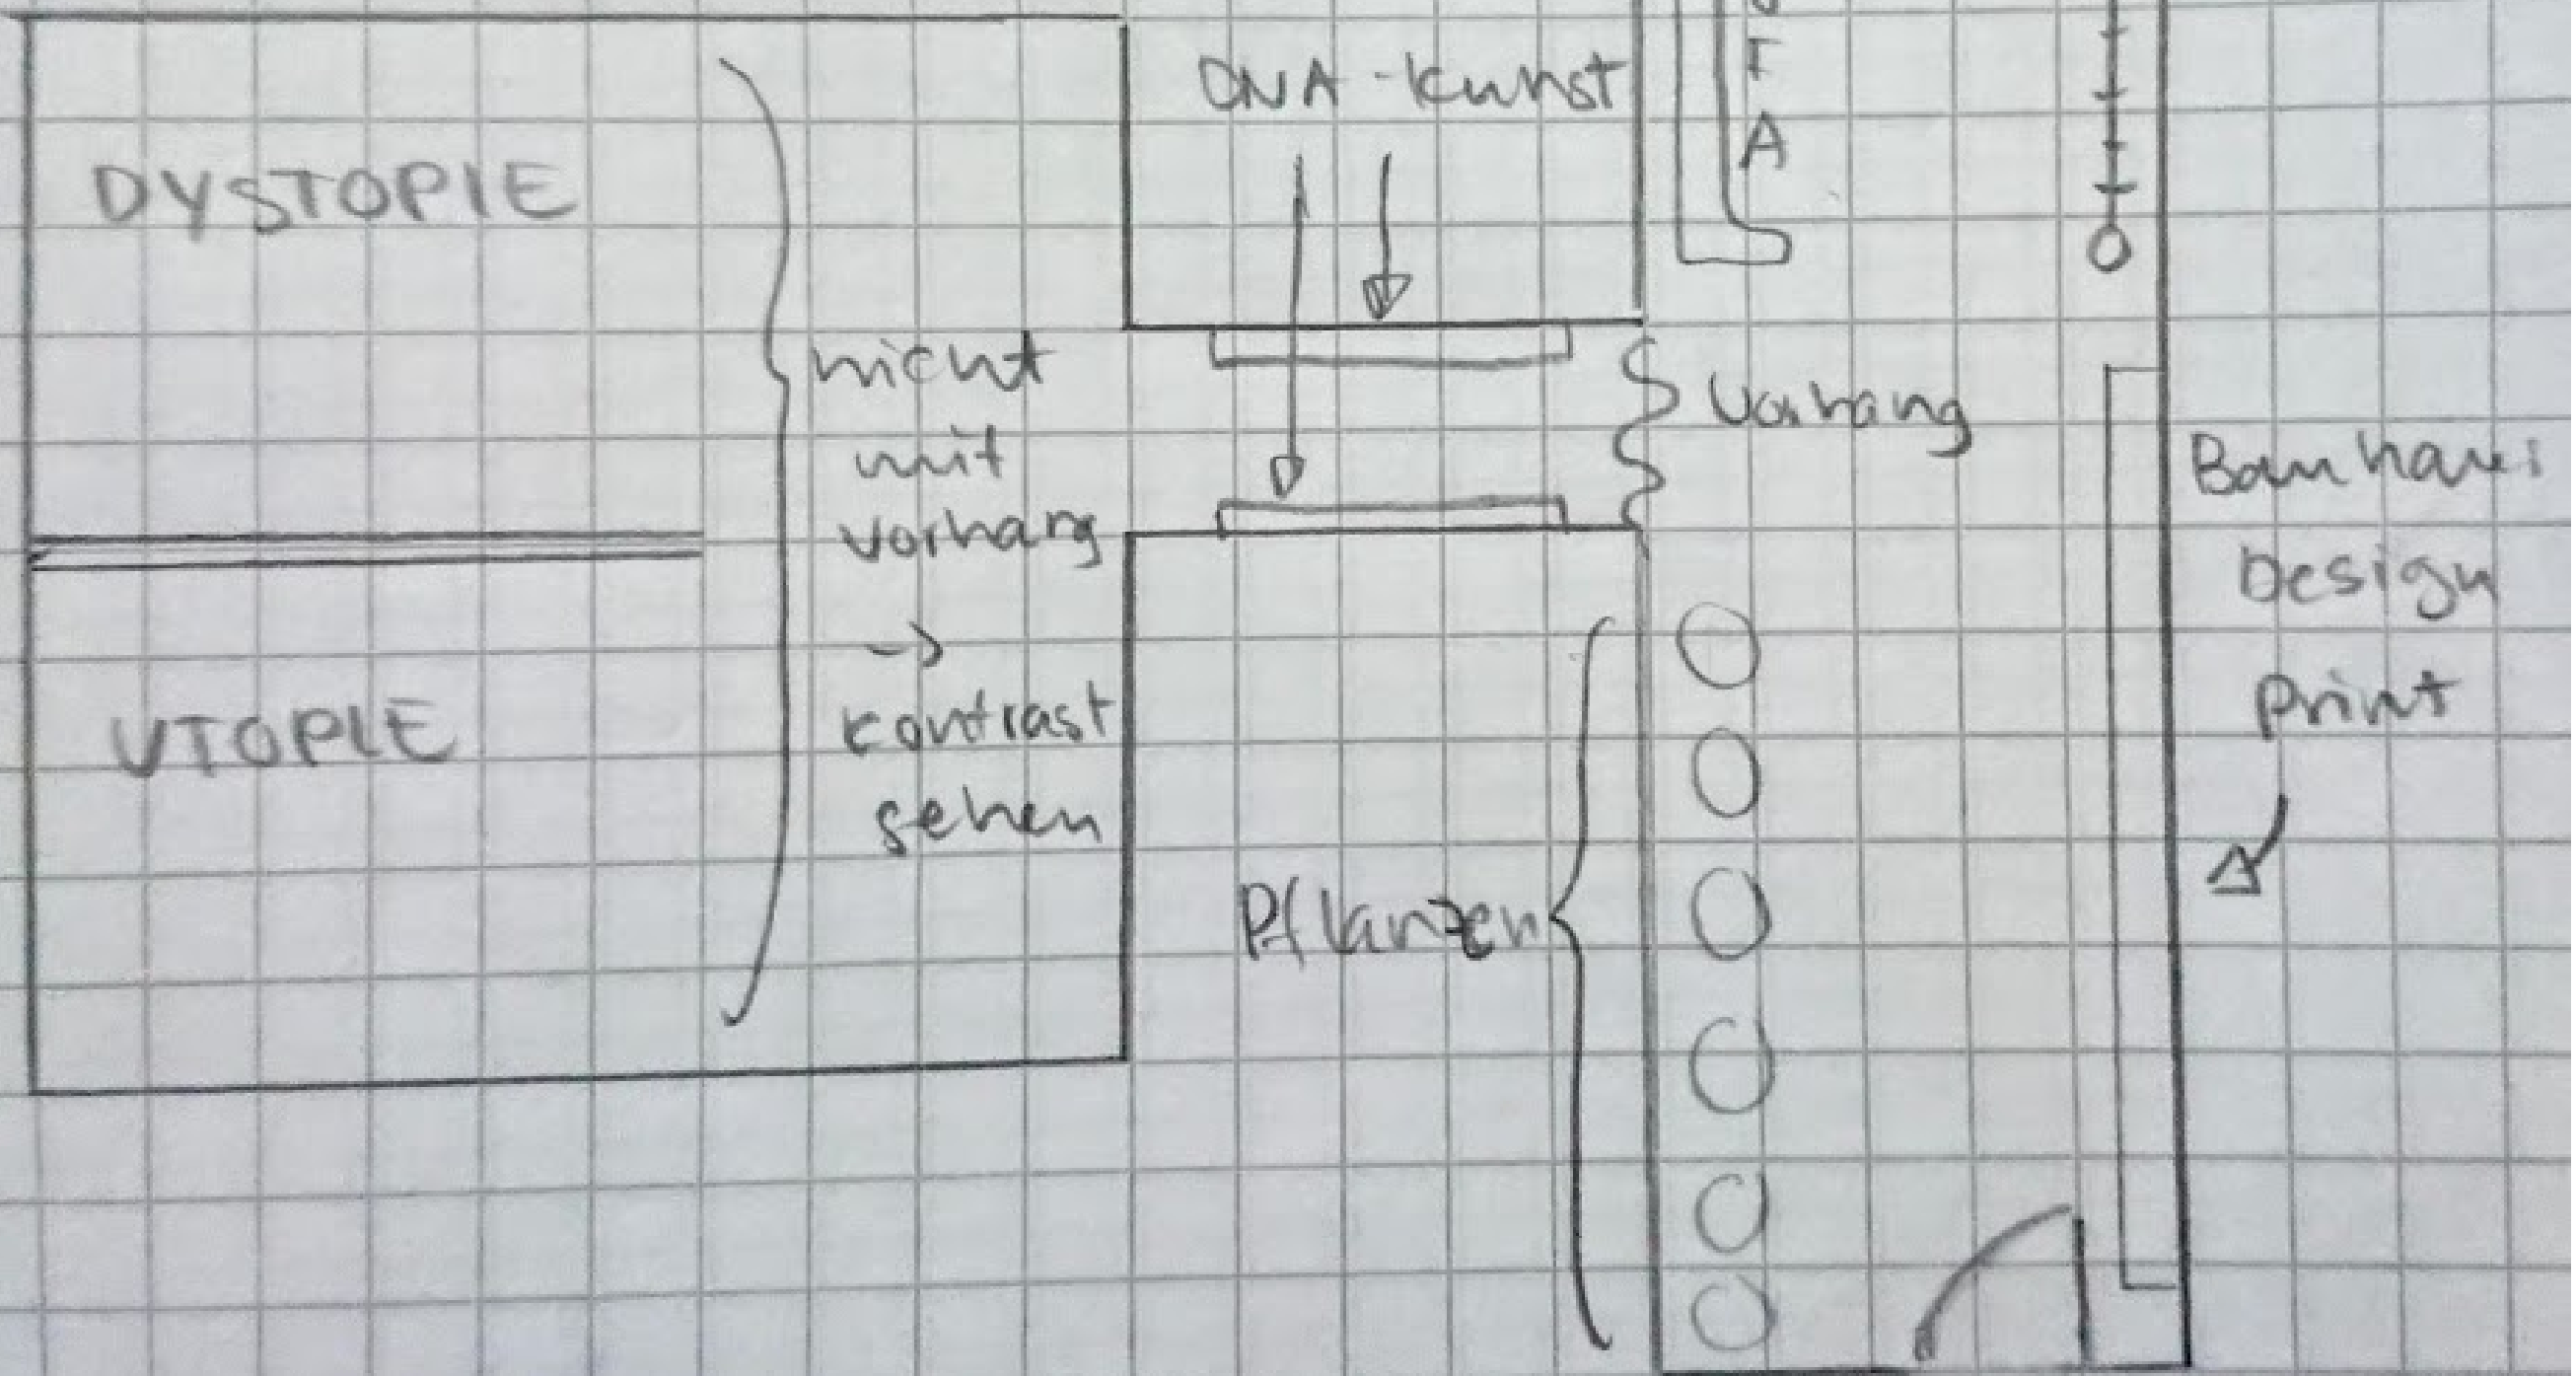 DYSTOPIE
UTOPIE
nicht
mit
vorhang
->
kontrast
sehen
DNA-Kunst
F
A
Vorhang
Pflanzen
Bauhaus
Design
Print